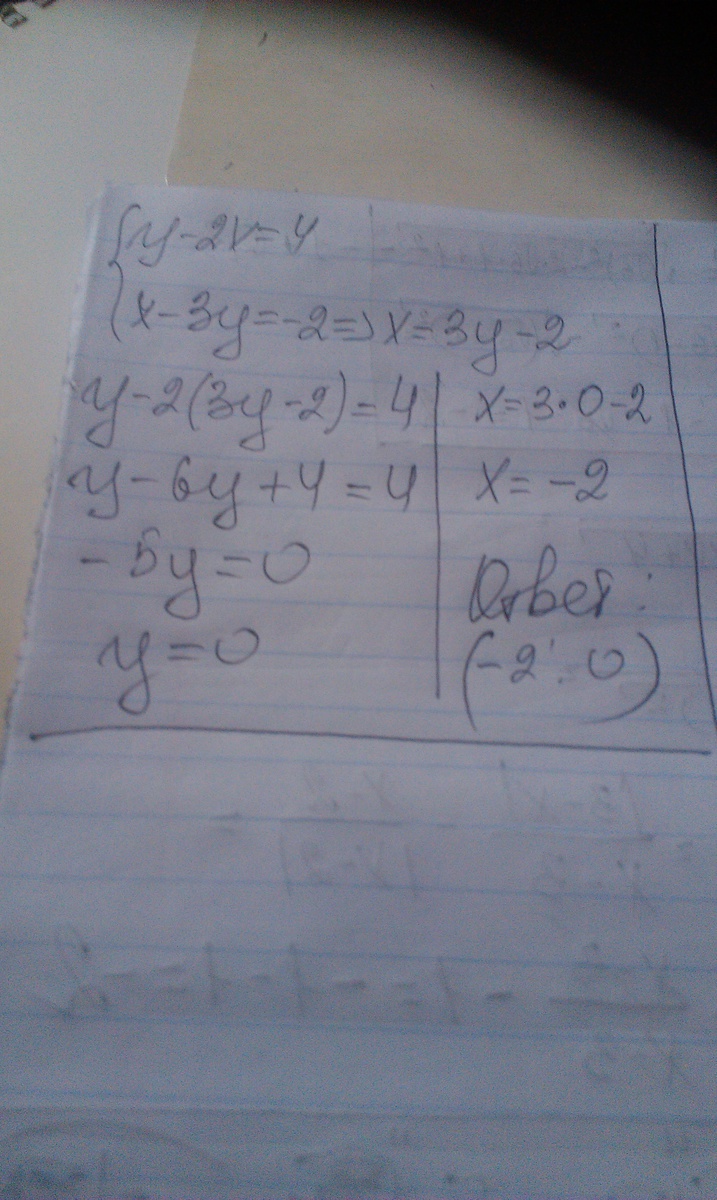 {y-2x=4
x-3y=-2=>x=3y-2
y-2(3y-2)=4
y-6y+4=4
-5y=0
y=0
x=3·0-2
x=-2
Ответ:
(-2; 0)